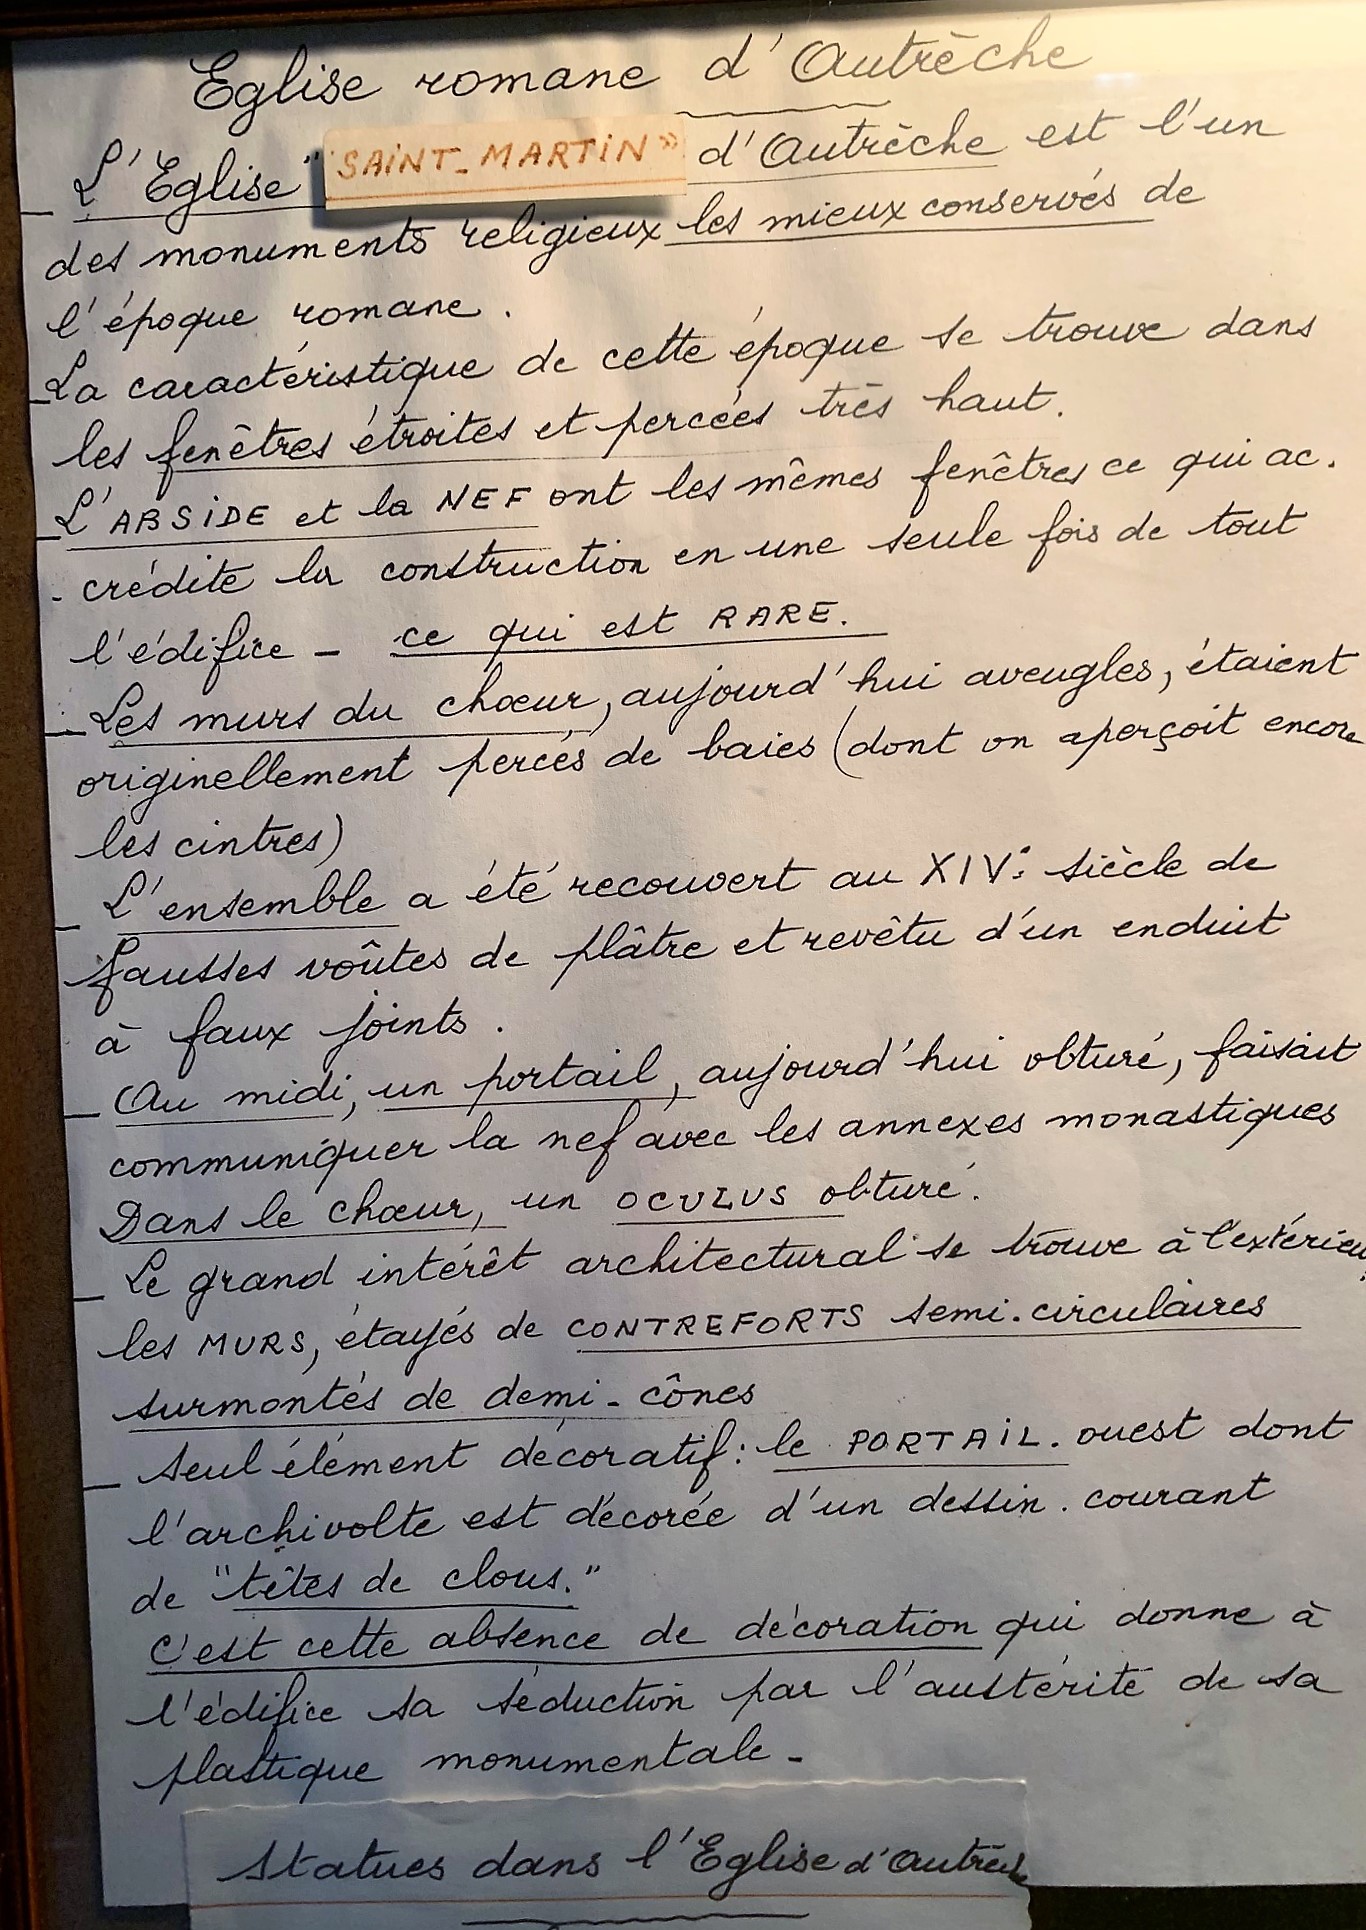 Eglise romane d'Autrèche
_ L'Eglise "SAINT_MARTIN" d'Autrèche est l'un
des monuments religieux les mieux conservés de
l'époque romane.
_ La caractéristique de cette époque se trouve dans
les fenêtres étroites et percées très haut.
_ L'ABSIDE et la NEF ont les mêmes fenêtres ce qui ac.
- crédite la construction en une seule fois de tout
l'édifice _ ce qui est RARE.
_ Les murs du chœur, aujourd'hui aveugles, étaient
originellement percés de baies (dont on aperçoit encore
les cintres)
_ L'ensemble a été recouvert au XIVe siècle de
fausses voûtes de plâtre et revêtu d'un enduit
à faux joints.
_ Au midi, un portail, aujourd'hui obturé, faisait
communiquer la nef avec les annexes monastiques
Dans le chœur, un OCULUS obturé.
_ Le grand intérêt architectural se trouve à l'extérieur,
les MURS, étayés de CONTREFORTS semi.circulaires
surmontés de demi-cônes
_ Seul élément décoratif: le PORTAIL. ouest dont
l'archivolte est décorée d'un dessin. courant
de "têtes de clous."
C'est cette absence de décoration qui donne à
l'édifice sa séduction par l'austérité de sa
plastique monumentale _
Statues dans l'Eglise d'Autrèche